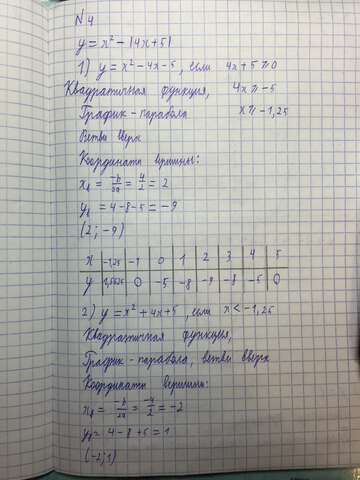 № 4
y = x² - |4x+5|
1) y = x² - 4x - 5, если 4x + 5 ⩾ 0
Квадратичная функция, 4x ⩾ -5
График - парабола x ⩾ -1,25
Ветви вверх
Координаты вершины:
xв = -b/2a = 4/2 = 2
yв = 4 - 8 - 5 = -9
(2; -9)
x -1,25 -1 0 1 2 3 4 5
y 1,5625 0 -5 -8 -9 -8 -5 0
2) y = x² + 4x + 5, если x < -1,25
Квадратичная функция,
График - парабола, ветви вверх
Координаты вершины:
xв = -b/2a = -4/2 = -2
yв = 4 - 8 + 5 = 1
(-2; 1)